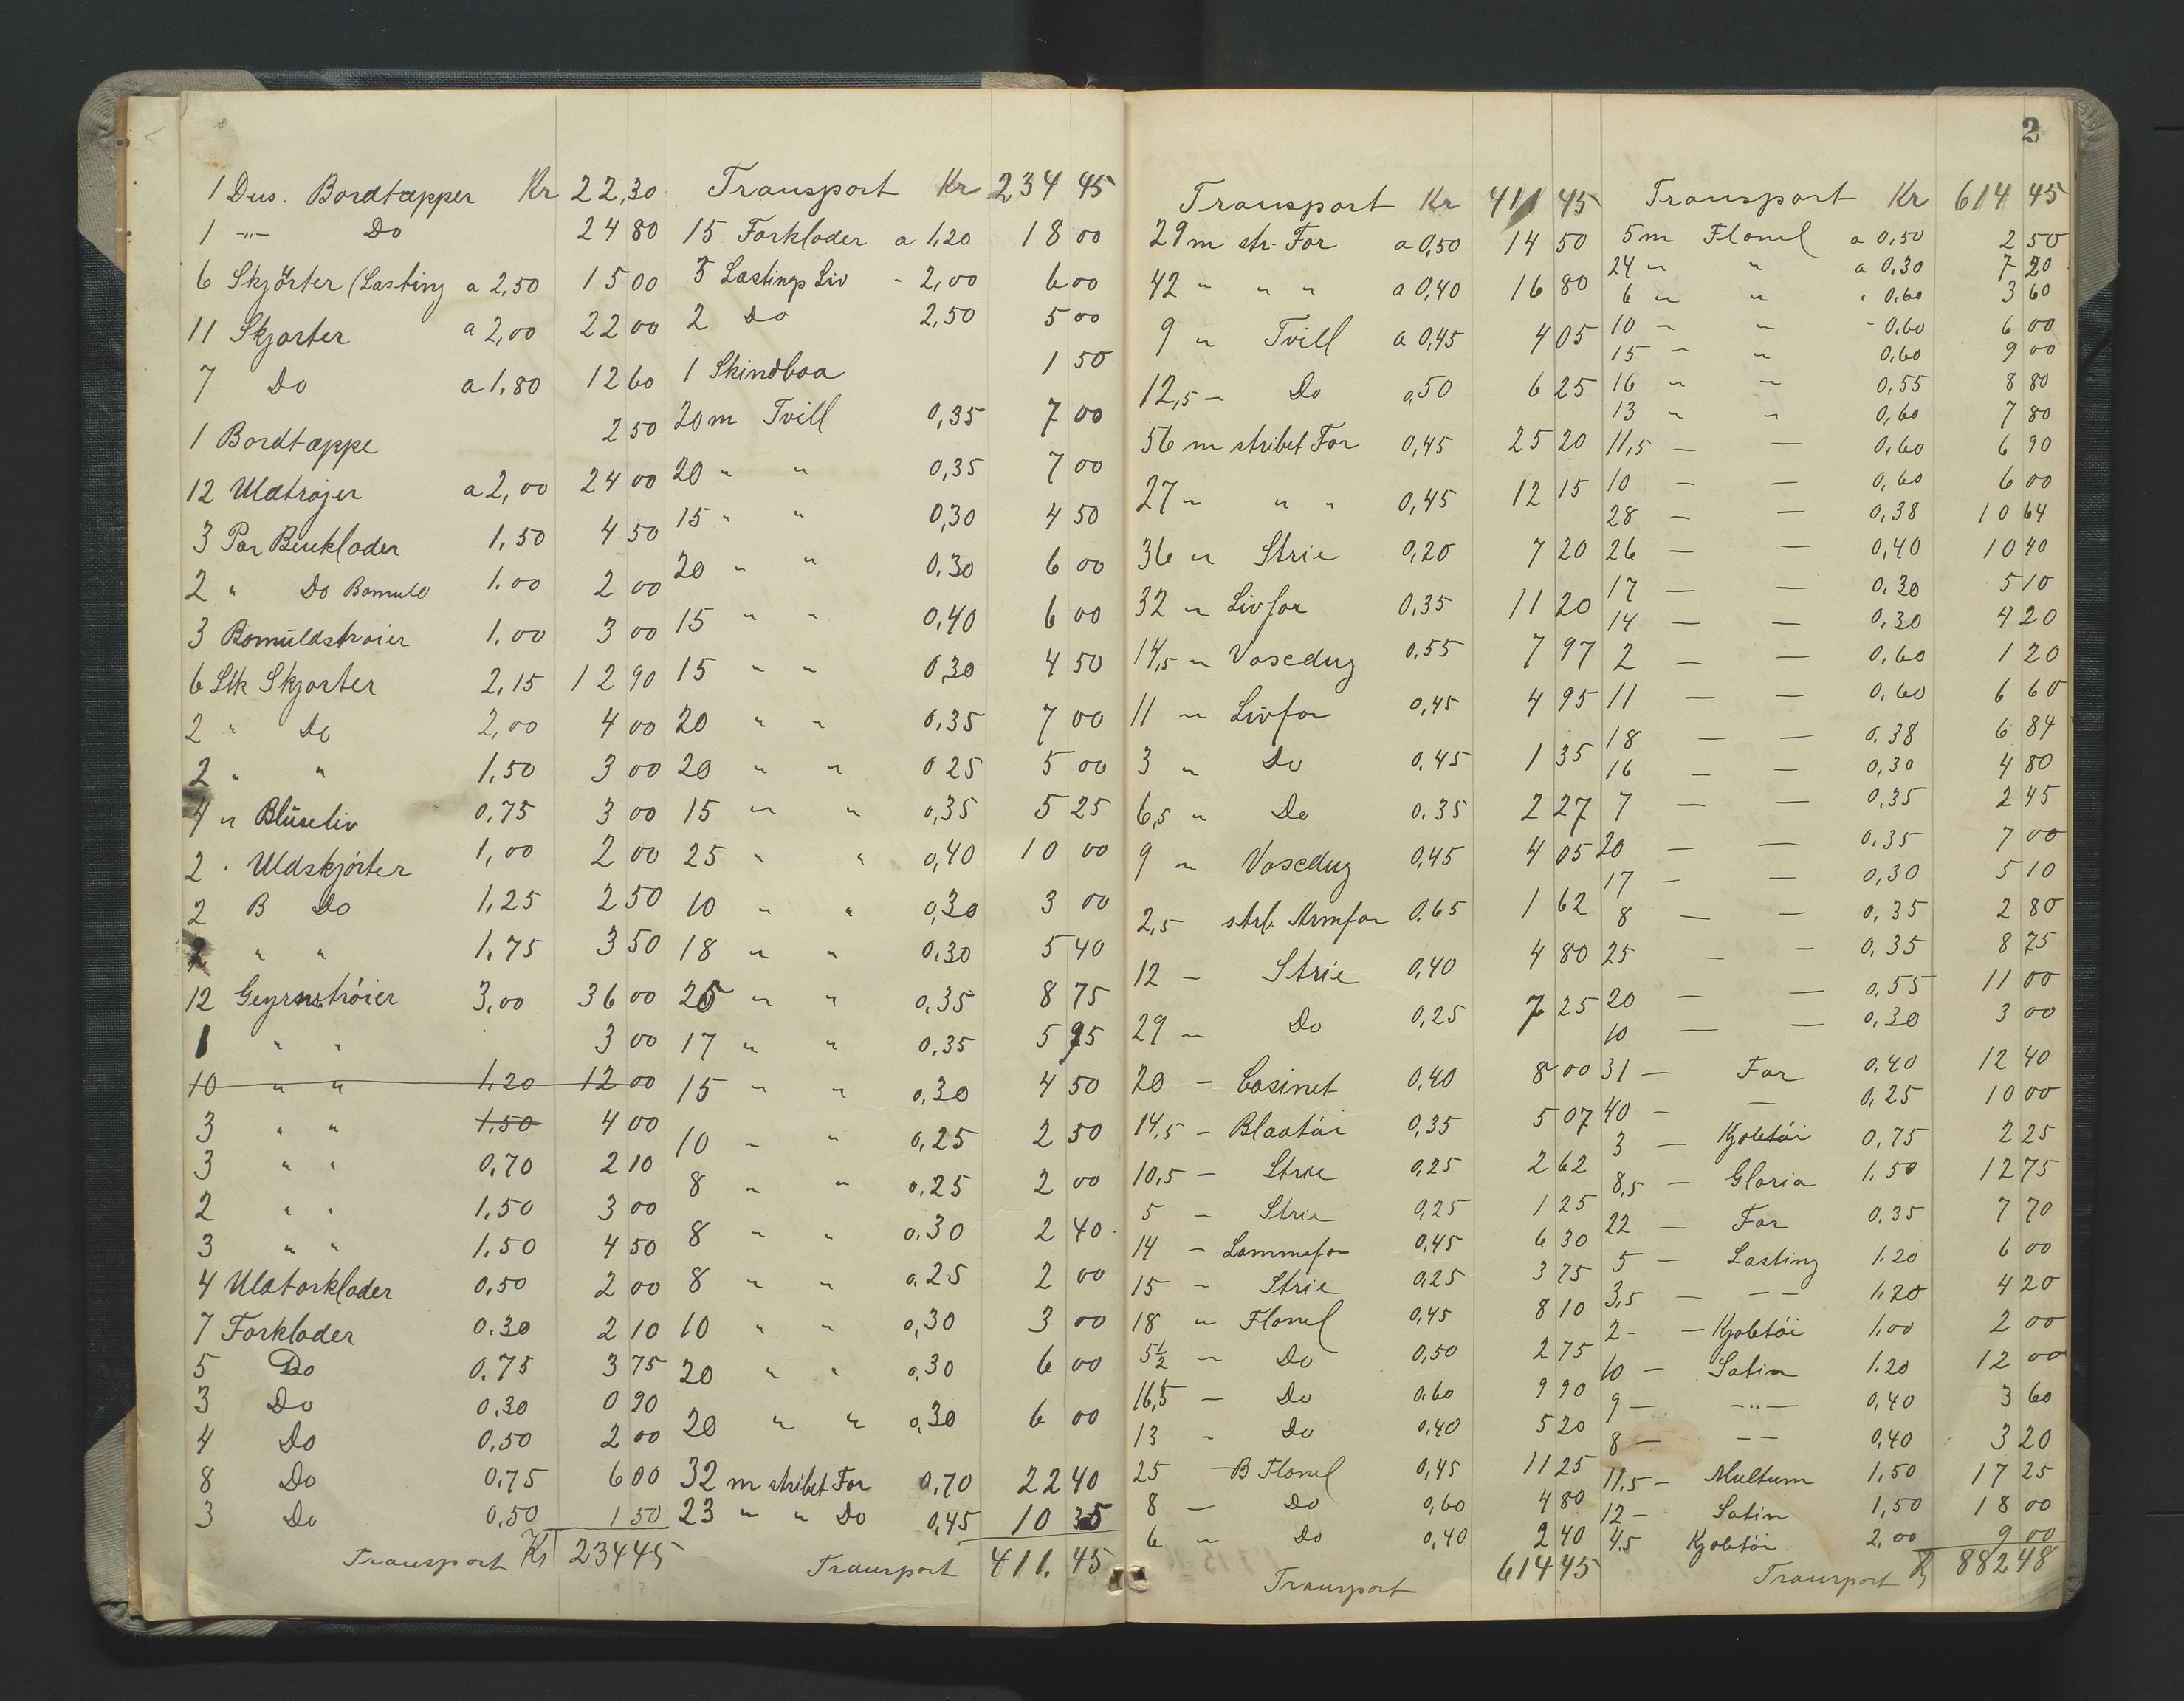 1 Dus. Bordtæpper Kr 22,30
1 -"- Do 24 80
6 Skjörter (Lasting a 2,50 15 00
11 Skjorter a 2,00 22 00
7 Do a 1,80 12 60
1 Bordtæppe 2 50
12 Uldtrøjer a 2,00 24 00
3 Par Benklæder 1,50 4 50
2 " Do Bomuld 1.00 2 00
3 Bomuldstrøier 1,00 3 00
6 Stk Skjorter 2,15 12 90
2 " Do 2,00 4 00
2 " " 1,50 3 00
4 " Bluseliv 0,75 3 00
2 " Uldskjörter 1,00 2 00
2 B Do 1,25 2 50
2 " " 1,75 3 50
12 tröier 3,00 36 00
1 " " 3 00
10 " " 1,20 12 00
3 " " 1,50 4 00
3 " " 0,70 2 10
2 " " 1,50 3 00
3 " " 1,50 4 50
4 Uldtorklæder 0,50 2 00
7 Forklæder 0.30 2 10
5 Do 0.75 3 75
3 Do 0,30 0 90
4 Do 0,50 2 00
8 Do 0,75 6 00
3 Do 0,50 1 50
Transport Kr 234 45
Transport Kr 234 45
15 Forklæder a 1,20 18 00
3 Lastings Liv - 2,00 6 00
2 Do 2,50 5 00
1 Skindboa 1 50
20 m Tvill 0,35 7 00
20 " " 0,35 7 00
15 " " 0,30 4 50
20 " " 0.30 6 00
15 " " 0,40 6 00
15 " " 0,30 4 50
20 " " 0,35 7 00
20 " " 0 25 5 00
15 " " 0,35 5 25
25 " " 0,40 10 00
10 " " 0,30 3 00
18 " " 0.30 5 40
25 " " 0,35 8 75
17 " " 0,35 5 95
15 " " 0,30 4 50
10 " " 0,25 2 50
8 " " 0,25 2 00
8 " " 0.30 2 40
8 " " 0,25 2 00
10 " " 0,30 3 00
20 " " 0,30 6 00
20 " " 0,30 6 00
32 m stribet For 0,70 22 40
23 " " Do 0,45 10 35
Transport 411. 45
2
Transport Kr 411 45
29 m str. For a 0,50 14 50
42 " " " a 0,40 16 80
9 " Tvill a 0,45 4 05
12,5 - Do 0,50 6 25
56 m stribet For 0,45 25 20
27 " " " 0,45 12 15
36 " Strie 0,20 7 20
32 " Livfor 0,35 11 20
14,5 " Vosedug 0,55 7 97
11 " Livfor 0,45 4 95
3 " Do 0,45 1 35
6,5 " Do 0.35 2 27
9 " Vosedug 0,45 4 05
2,5 strb. Armfor 0,65 1 62
12 - Strie 0,40 4 80
29 - Do 0,25 7 25
20 - Cosinet 0,40 8 00
14,5 - Blaatöi 0,35 5 07
10,5 - Strie 0,25 2 62
5 - Strie 0,25 1 25
14 - Lommefor 0,45 6 30
15 - Strie 0,25 3 75
18 " Flonel 0,45 8 10
5 1/2 - Do 0,50 2 75
16,5 - Do 0.60 9 90
13 - Do 0,40 5 20
25 - B Flonel 0,45 11 25
8 - Do 0,60 4 80
6 " Do 0,40 2 40
Transport 614 45
Transport Kr 614 45
5 m Flonel a 0,50 2 50
24 " " a 0.30 7 20
6 " " " 0.60 3 60
10 - " - 0,60 6 00
15 - " 0,60 9 00
16 " - 0,55 8 80
13 " " 0,60 7 80
11,5 - - 0,60 6 90
10 - - 0,60 6 00
28 - - 0,38 10 64
26 - - 0,40 10 40
17 - - 0.30 5 10
14 - - 0.30 4 20
2 - - 0,60 1 20
11 - - 0,60 6 60
18 - - 0.38 6 84
16 - - 0,30 4 80
7 - - 0,35 2 45
20 - - 0,35 7 00
17 - - 0,30 5 10
8 - - 0,35 2 80
25 - - 0,35 8 75
20 - - 0,55 11 00
10 - - 0,30 3 00
31 - For 0,40 12 40
40 - - 0,25 10 00
3 - Kjoletöi 0,75 2 25
8,5 - Gloria 1,50 12 75
22 - For 0,35 7 70
5 - Lasting 1.20 6 00
3,5 - - - 1,20 4 20
2 - - Kjoletöi 1,00 2 00
10 - Satin 1.20 12 00
9 - -"- 0,40 3 60
8 - - - 0,40 3 20
11,5 - Multum 1,50 17 25
12 - Satin 1,50 18 00
4.5 Kjoletöi 2,00 9 00
Transport Kr 882 48